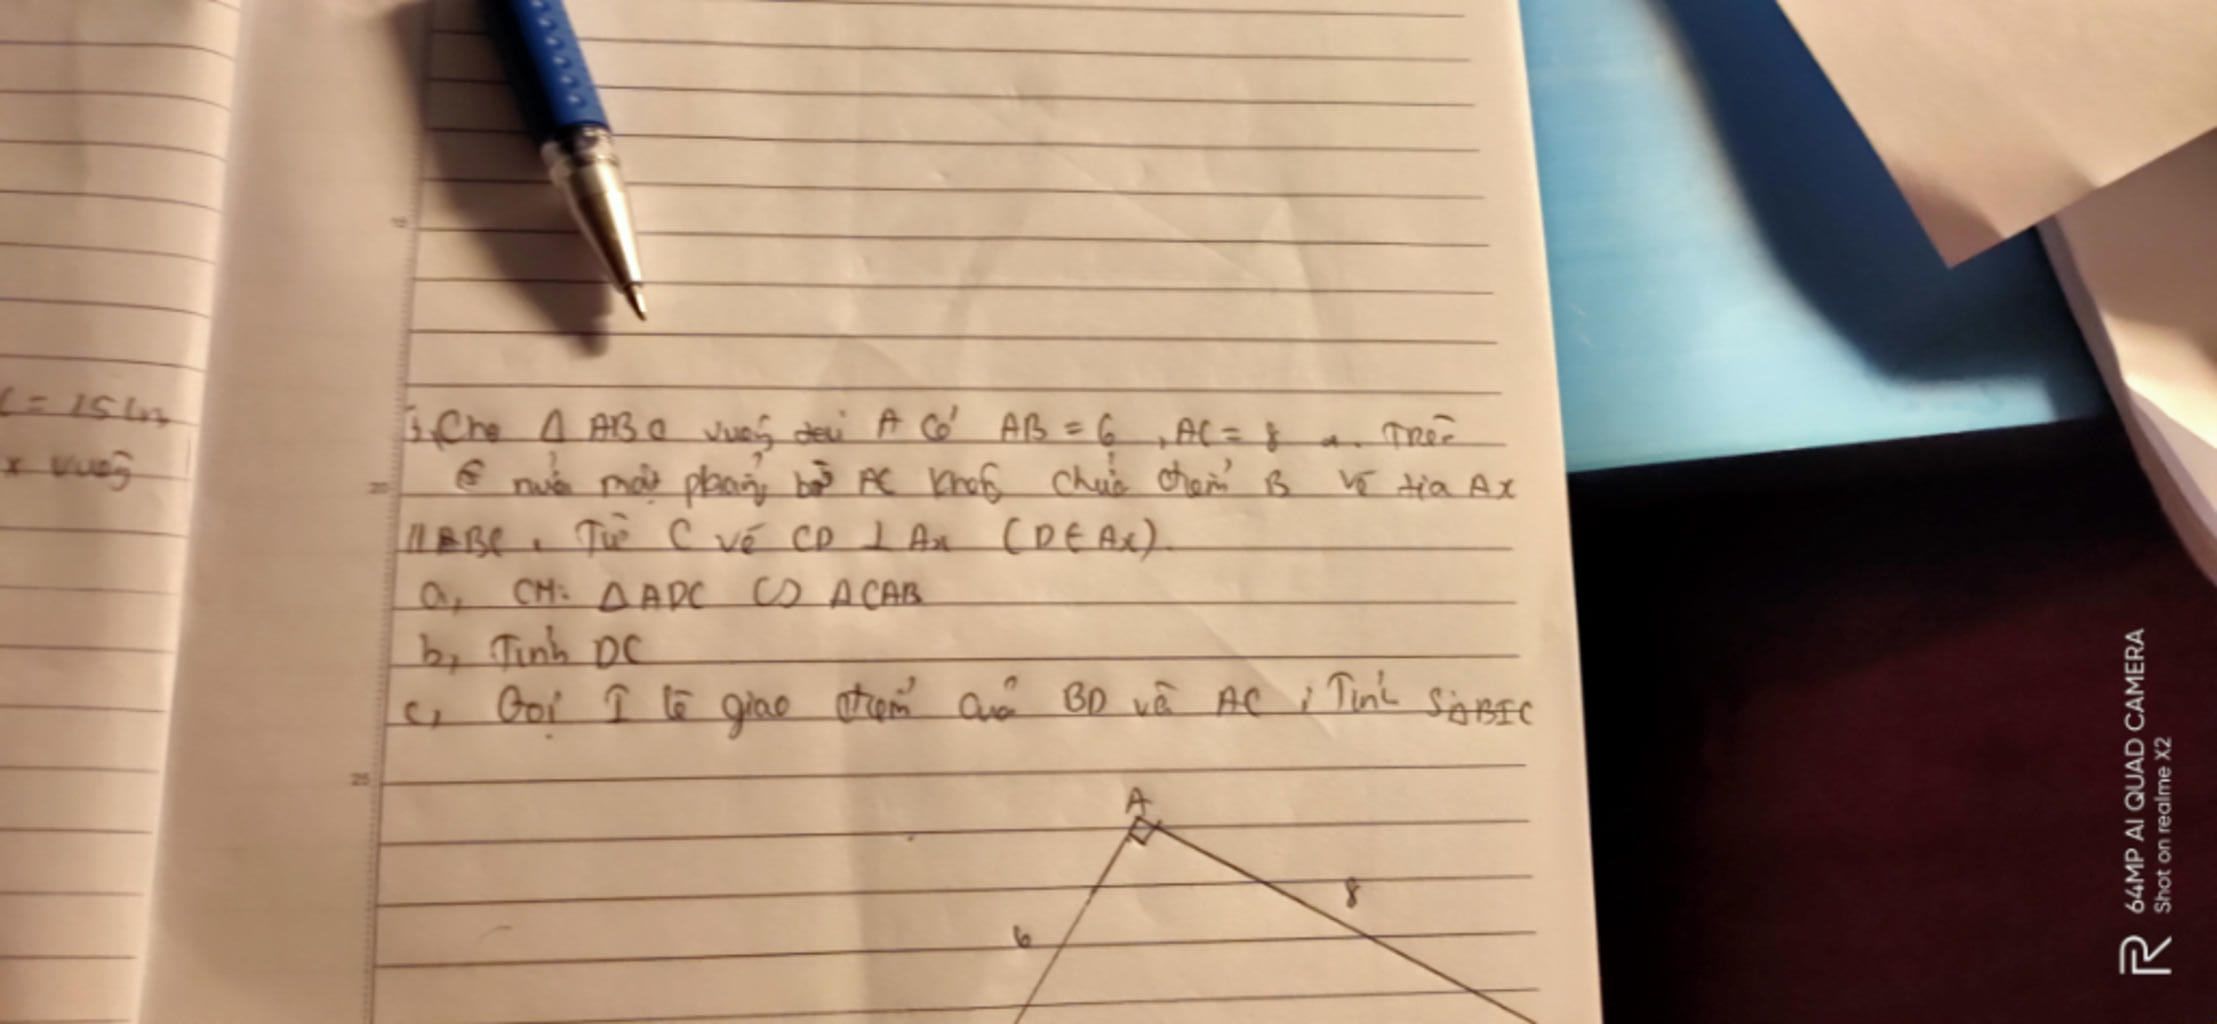 L = 15 cm
x vuông
Cho Δ ABC vuông tại A có AB = 6, AC = 8 . Trên
nửa mặt phẳng bờ AC không chứa điểm B vẽ tia Ax
// BC. Từ C vẽ CD ⊥ Ax (D ∈ Ax).
a, CM: ΔADC ∽ ΔCAB
b, Tính DC
c, Gọi I là giao điểm của BD và AC, Tính SΔBIC
A
8
6
20
25
64MP AI QUAD CAMERA
Shot on realme X2